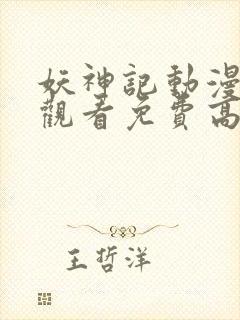 妖神記動漫
觀看免費高
王哲洋